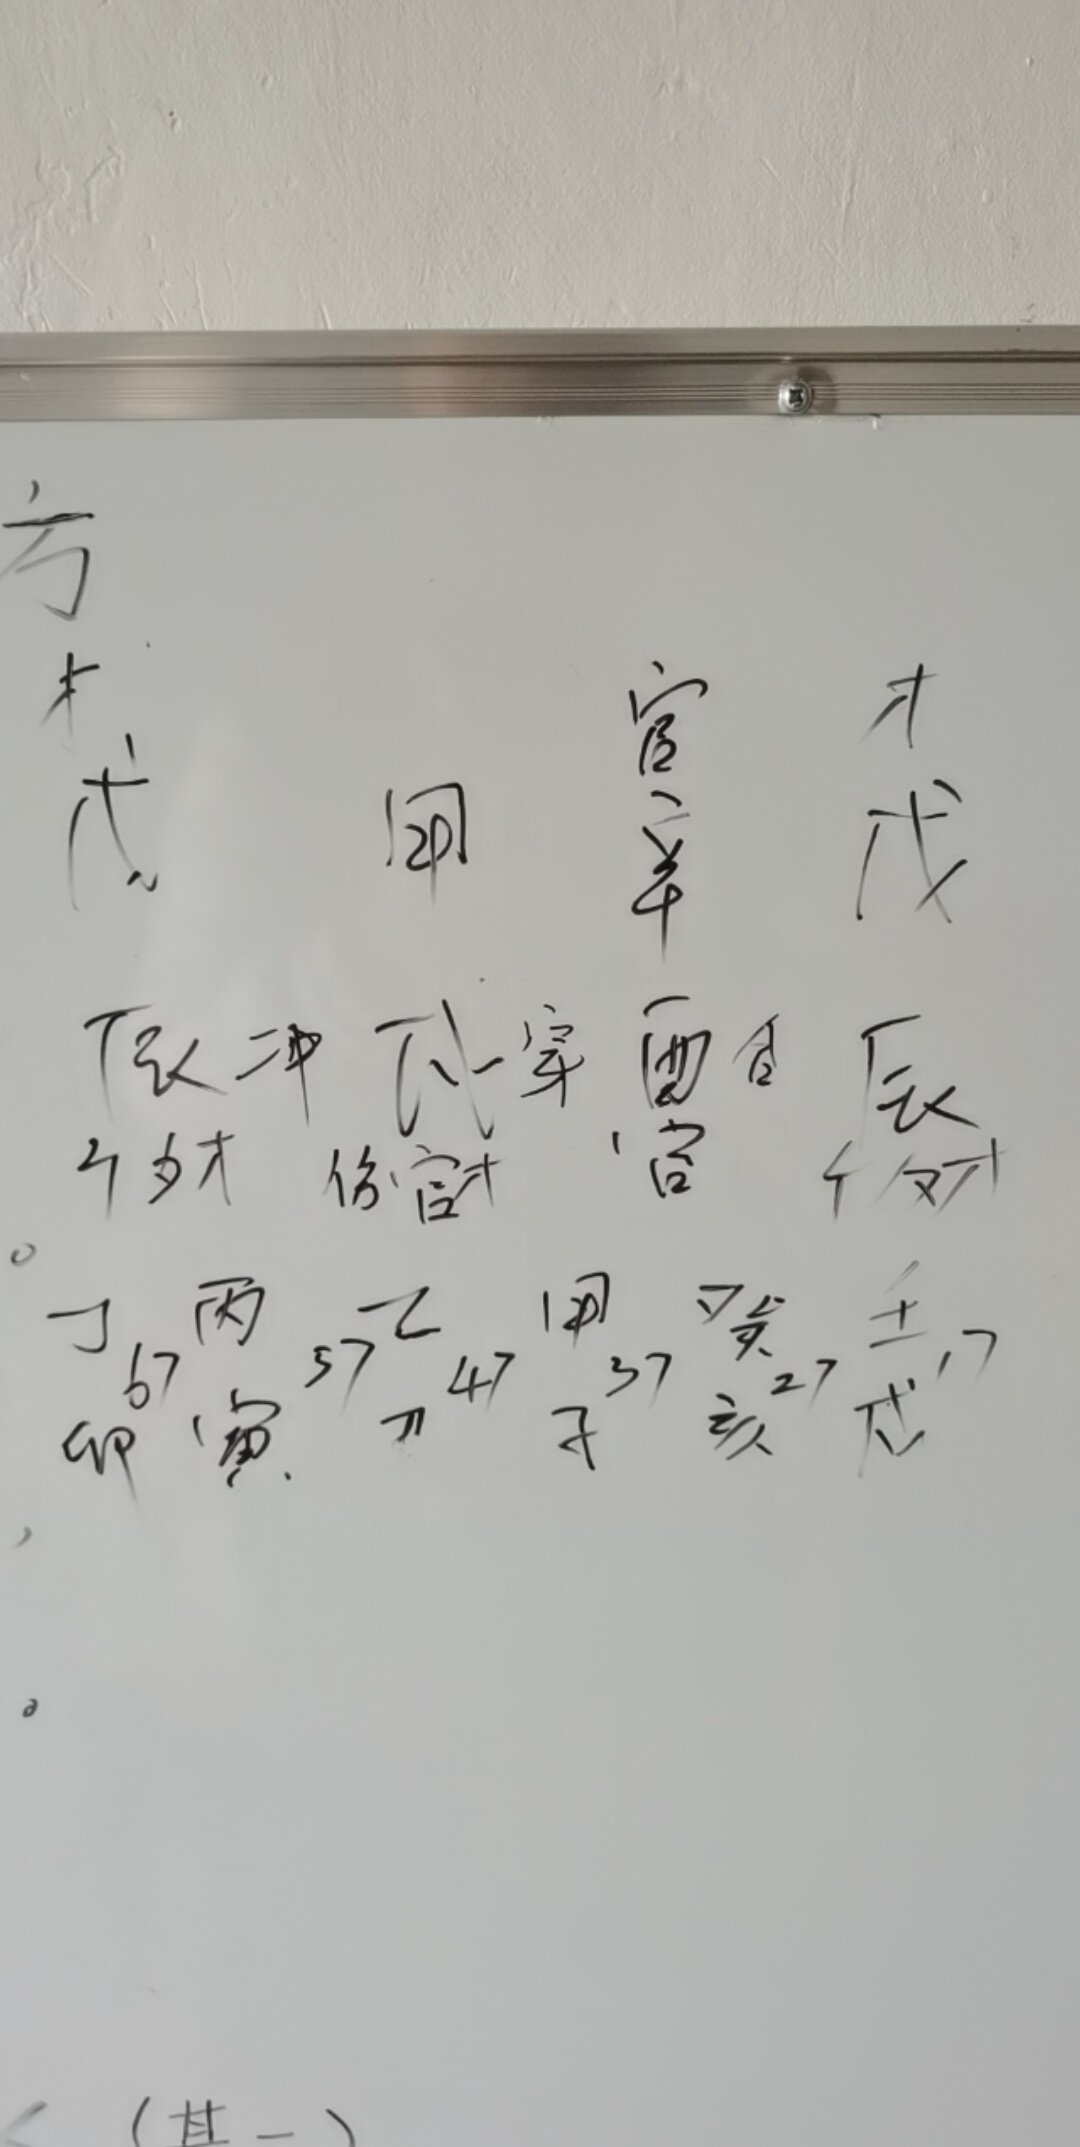 方
才 官 才
戊 甲 辛 戊
辰 冲 戌 穿 酉 合 辰
伤官才 官
丁 丙 乙 甲 癸 壬
67 57 47 37 27 17
卯 寅 丑 子 亥 戌
(其一)